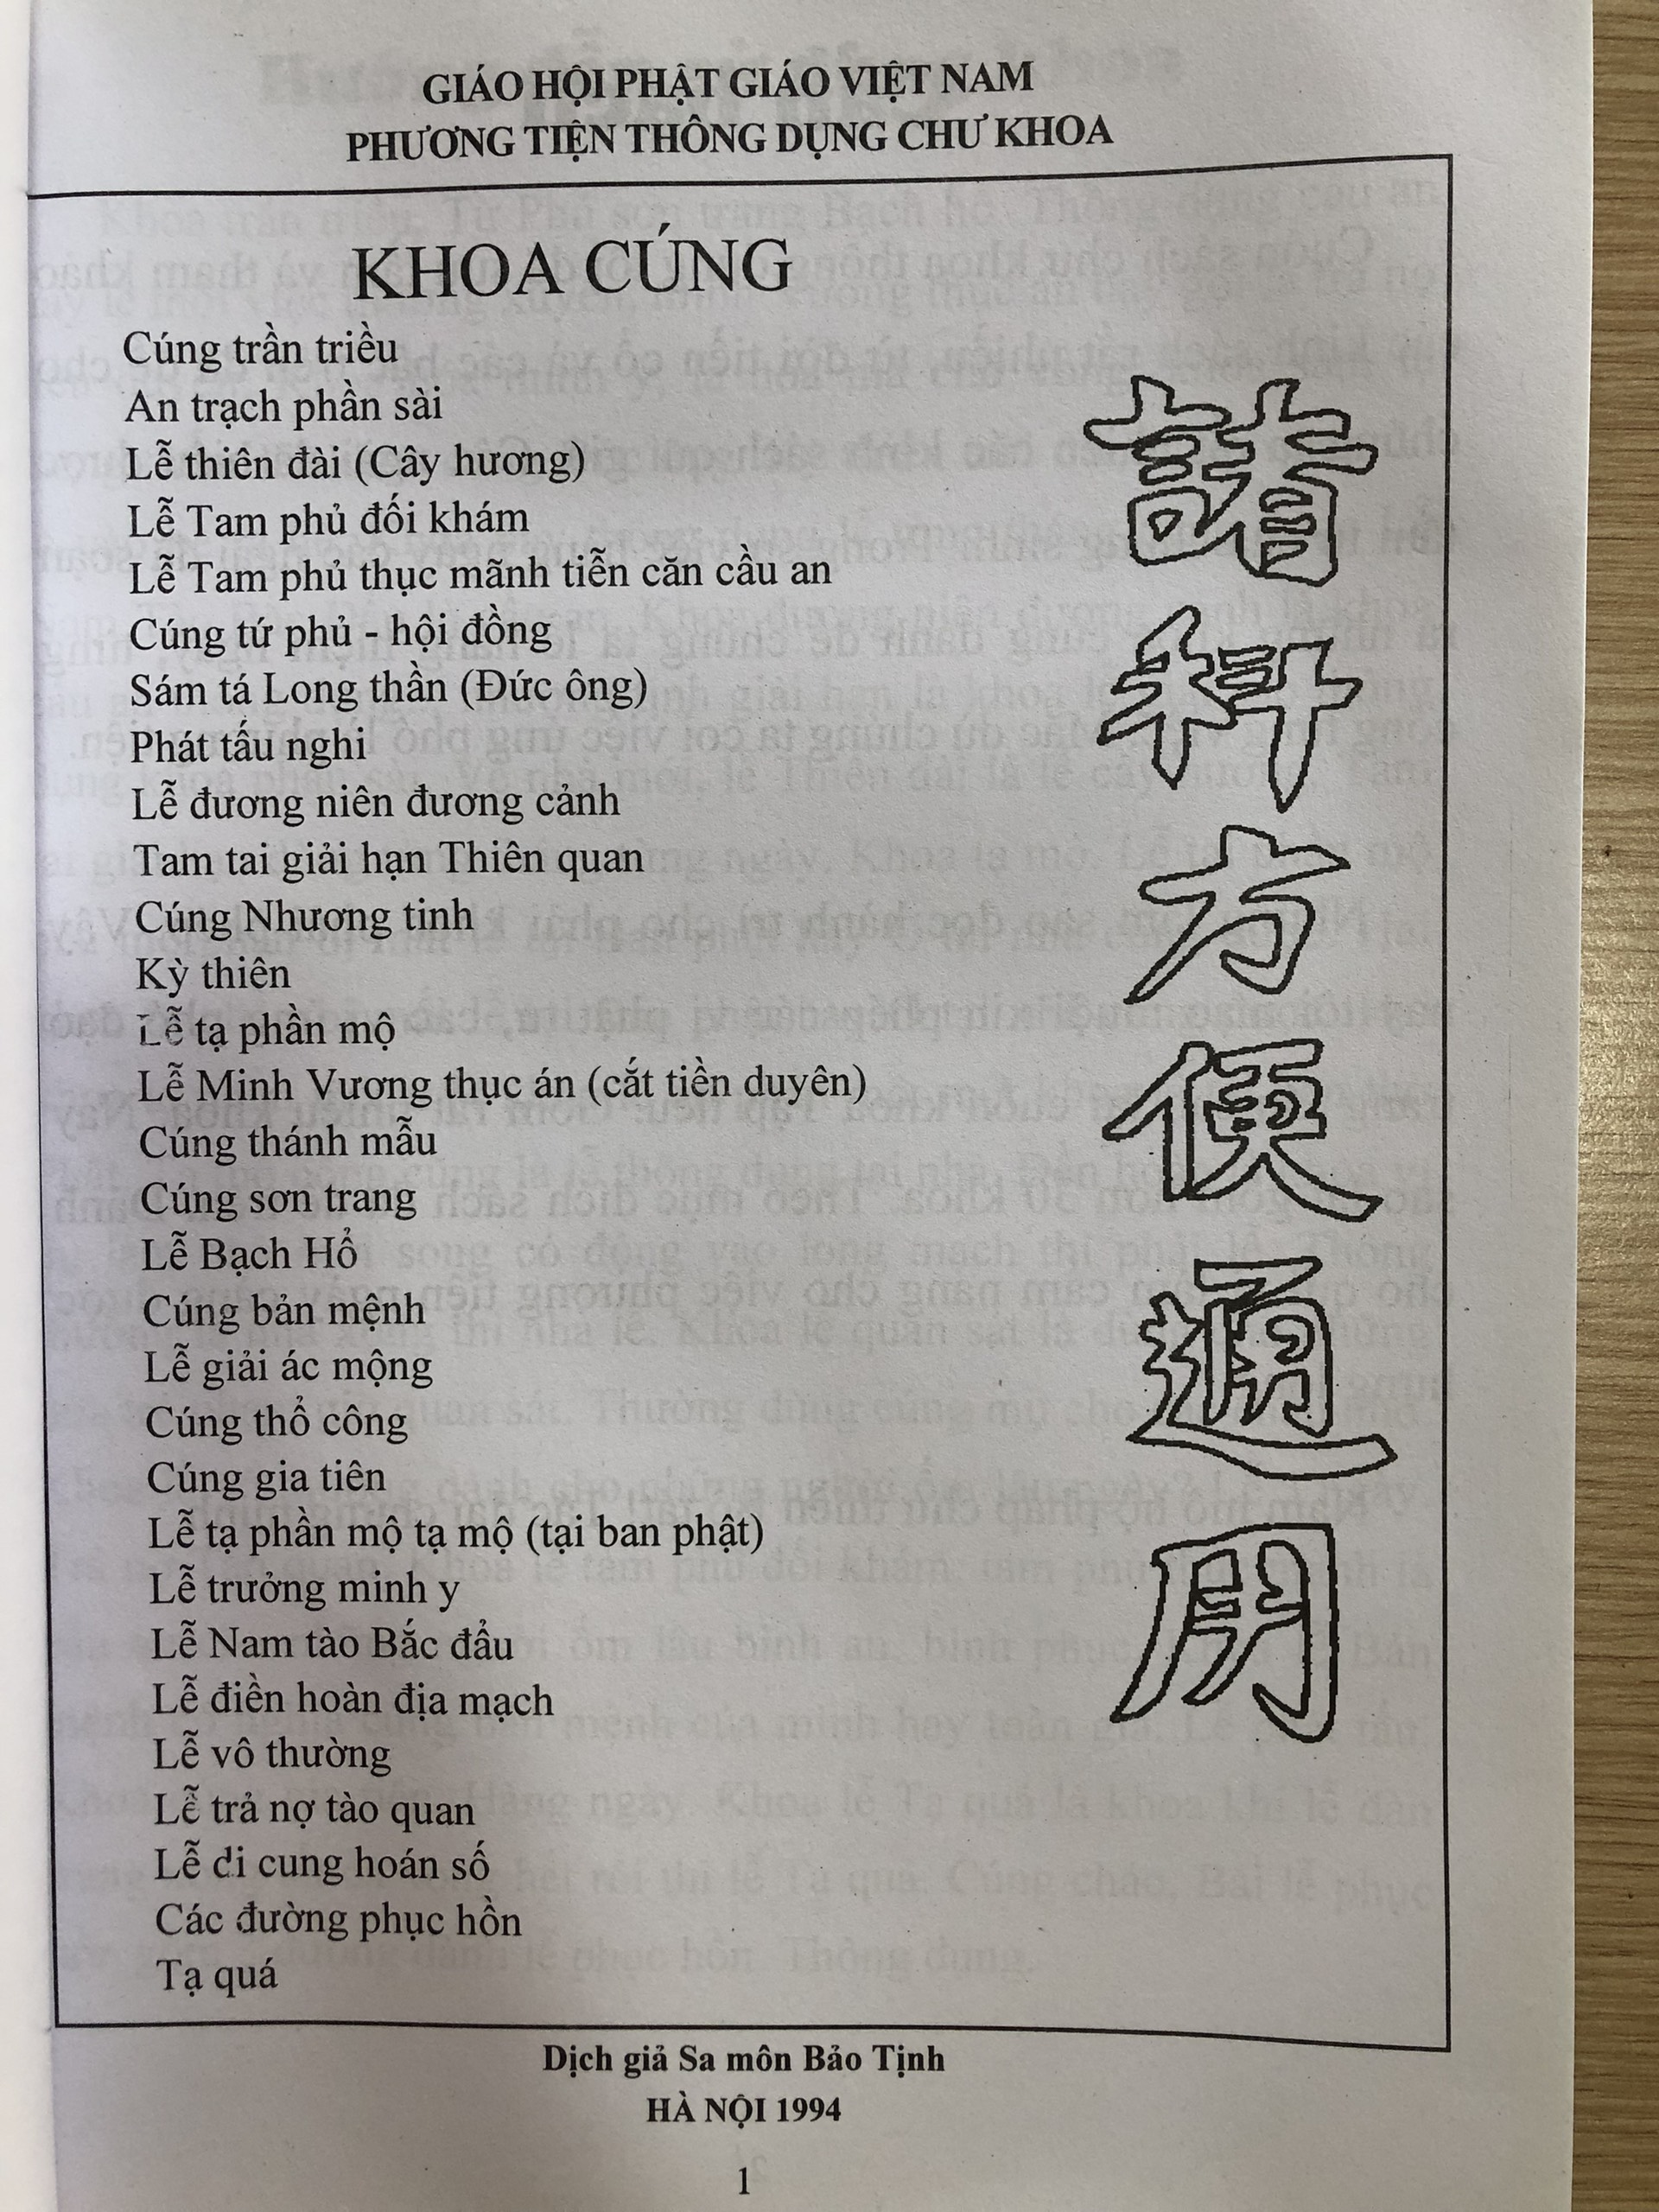 GIÁO HỘI PHẬT GIÁO VIỆT NAM
PHƯƠNG TIỆN THÔNG DỤNG CHƯ KHOA
KHOA CÚNG
Cúng trần triều
An trạch phần sài
Lễ thiên đài (Cây hương)
Lễ Tam phủ đối khám
Lễ Tam phủ thục mãnh tiễn căn cầu an
Cúng tứ phủ - hội đồng
Sám tá Long thần (Đức ông)
Phát tấu nghi
Lễ đương niên đương cảnh
Tam tai giải hạn Thiên quan
Cúng Nhương tinh
Kỳ thiên
Lễ tạ phần mộ
Lễ Minh Vương thục án (cắt tiền duyên)
Cúng thánh mẫu
Cúng sơn trang
Lễ Bạch Hổ
Cúng bản mệnh
Lễ giải ác mộng
Cúng thổ công
Cúng gia tiên
Lễ tạ phần mộ tạ mộ (tại ban phật)
Lễ trưởng minh y
Lễ Nam tào Bắc đẩu
Lễ điền hoàn địa mạch
Lễ vô thường
Lễ trả nợ tào quan
Lễ di cung hoán số
Các đường phục hồn
Tạ quá
諸
科
方
便
通
用
Dịch giả Sa môn Bảo Tịnh
HÀ NỘI 1994
1